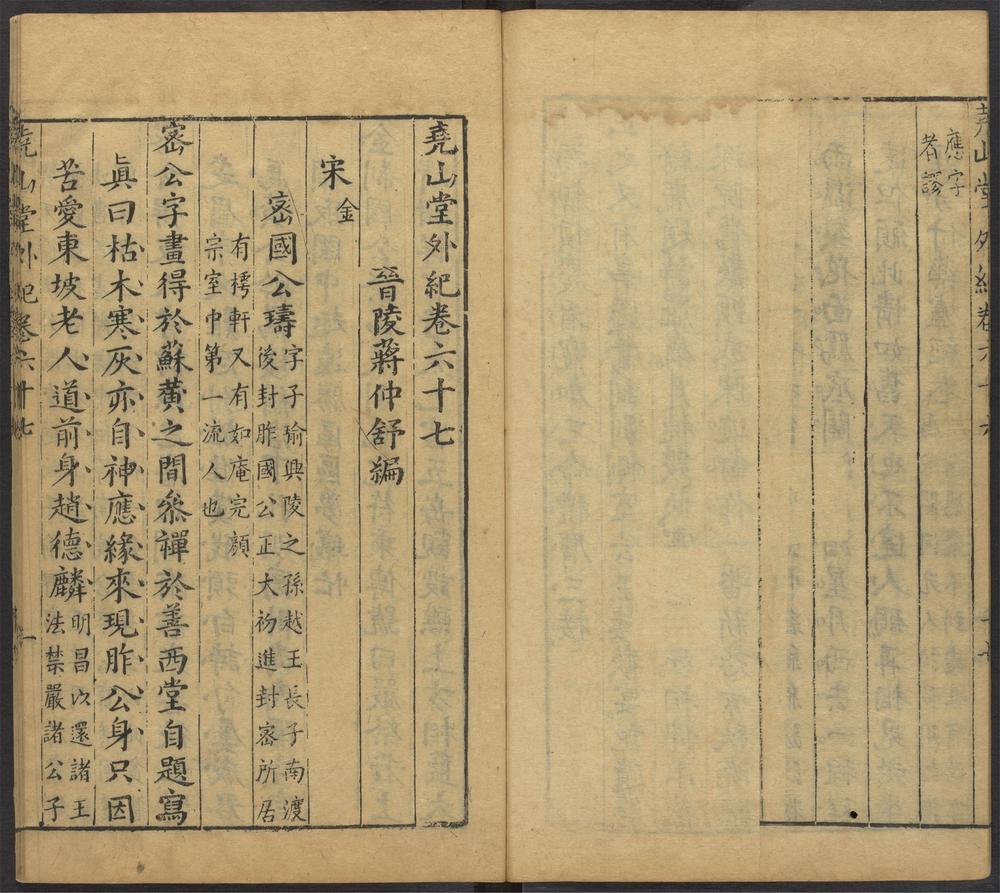 堯山堂外紀卷六十六
應字
者謬
堯山堂外紀卷六十七
晉陵蔣仲舒編
宋金
密國公璹
字子瑜興陵之孫越王長子南渡
後封胙國公正大初進封密所居
有樗軒又有如庵完顏
宗室中第一流人也
密公字畫得於蘇黃之間叅禪於善西堂自題寫
眞曰枯木寒灰亦自神應緣來現胙公身只因
苦愛東坡老人道前身趙德麟
明昌以還諸王
法禁嚴諸公子
堯山堂外紀卷六十七
一